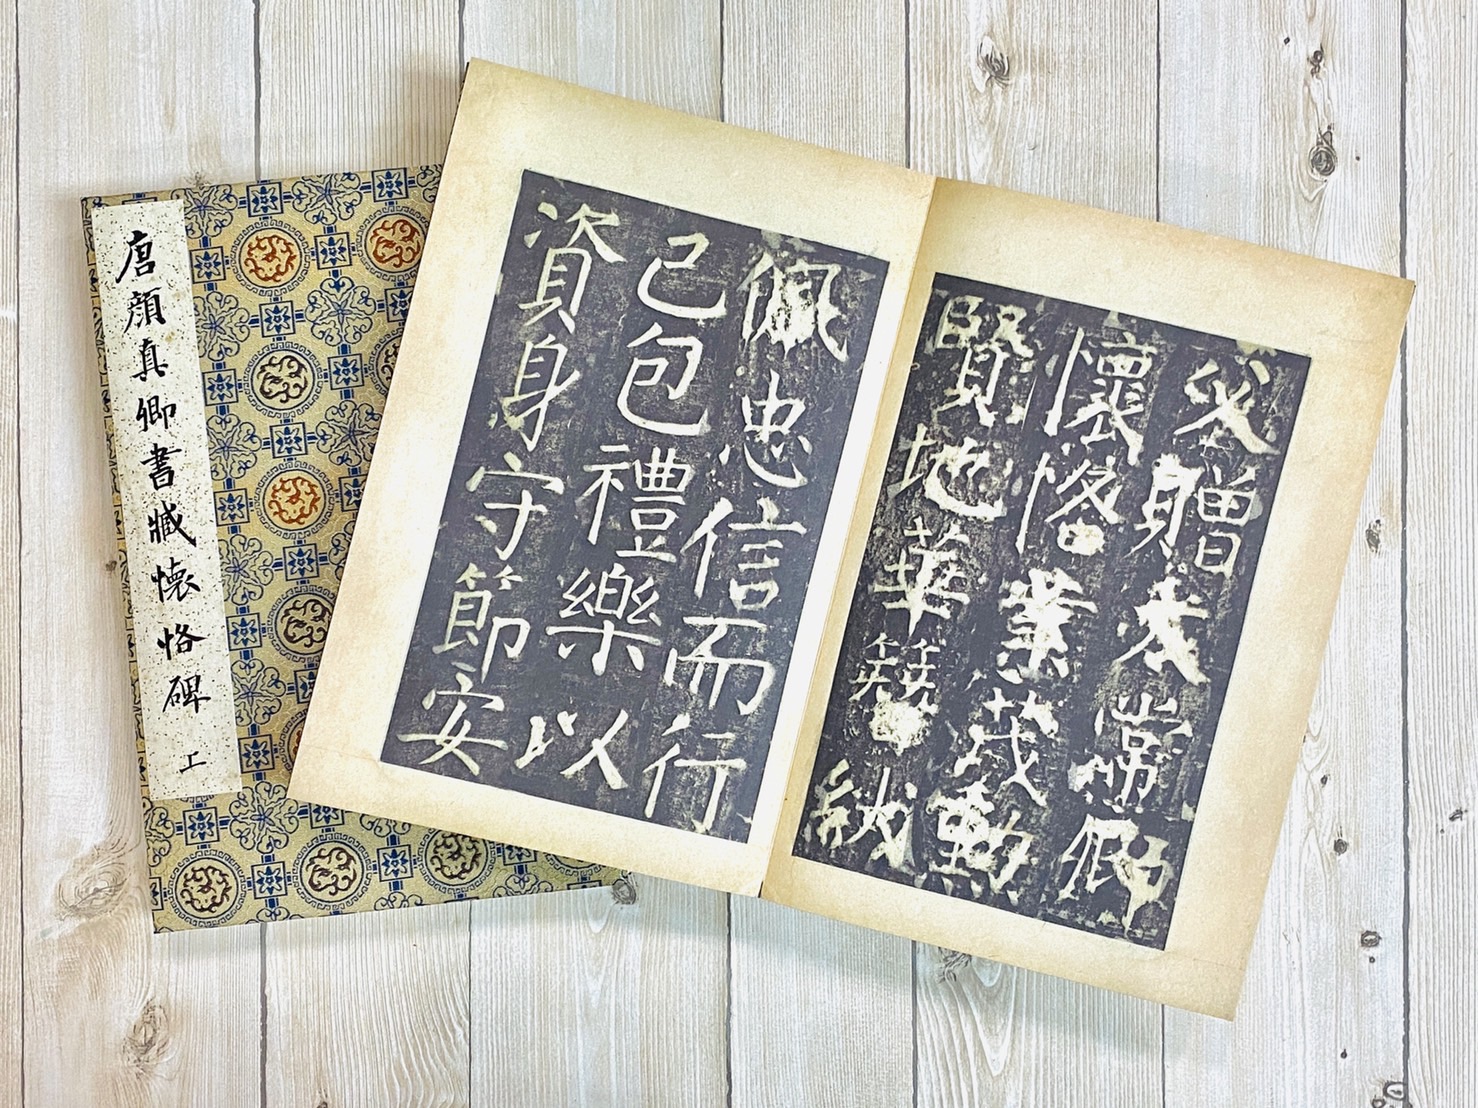 唐顔真卿書臧懷恪碑 上
父贈太常卿
懷恪業茂勳
賢地華簪紱
佩忠信而行
己包禮樂以
資身守節安